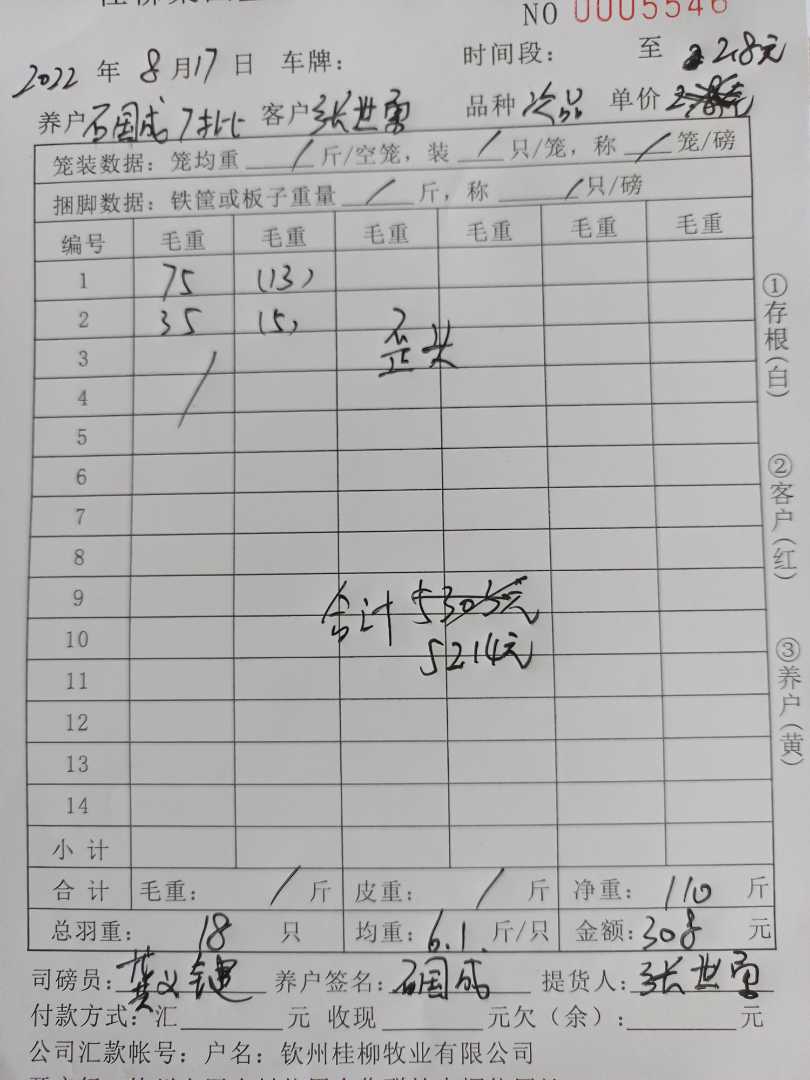 NO 0005546
2022 年 8 月 17 日 车牌： 时间段： 至 2.8元
养户 石国成 7批 客户 张世勇 品种 次品 单价
笼装数据：笼均重 / 斤/空笼，装 / 只/笼，称 / 笼/磅
捆脚数据：铁筐或板子重量 / 斤，称 / 只/磅
编号 毛重 毛重 毛重 毛重 毛重 毛重
1 75 (13)
2 35 (5)
3 歪头
4 /
5
6
7
8
9 合计 5305元
10 5214元
11
12
13
14
小计
合计 毛重： / 斤 皮重： / 斤 净重： 110 斤
总羽重： 18 只 均重： 6.1 斤/只 金额： 308 元
司磅员： 养户签名： 石国成 提货人： 张世勇
付款方式：汇 元 收现 元欠（余）： 元
公司汇款帐号：户名：钦州桂柳牧业有限公司
①存根（白）
②客户（红）
③养户（黄）